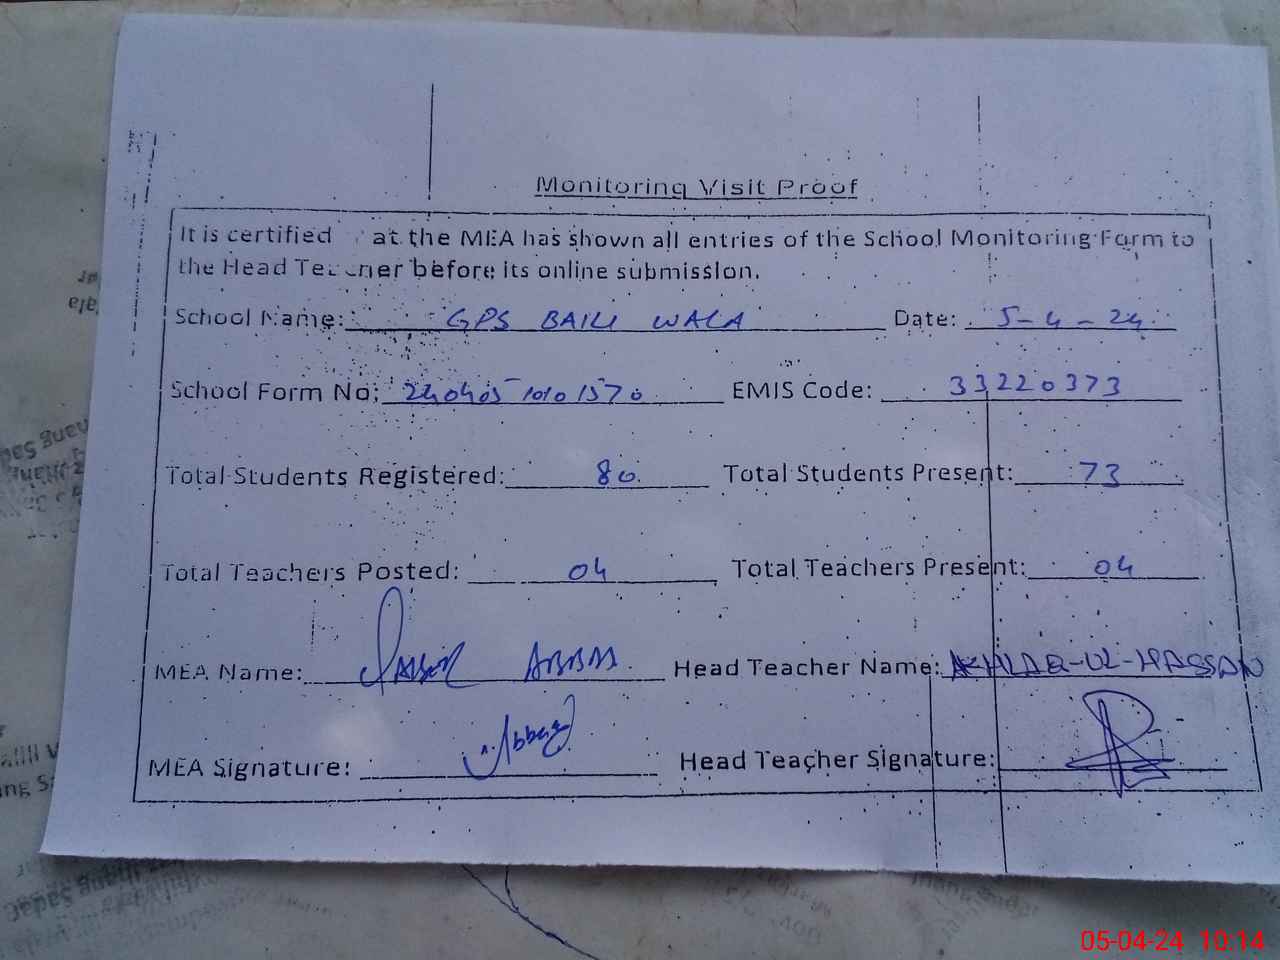 Monitoring Visit Proof
It is certified at the MEA has shown all entries of the School Monitoring Form to
the Head Teacher before its online submission.
School Name: GPS BAILI WALA Date: 5-4-24
School Form No: 240405 10101570 EMIS Code: 33220373
Total Students Registered: 80 Total Students Present: 73
Total Teachers Posted: 04 Total Teachers Present: 04
MEA Name: ABBAS Head Teacher Name: AKHLAQ-UL-HASSAN
MEA Signature: Abbas Head Teacher Signature:
05-04-24 10:14